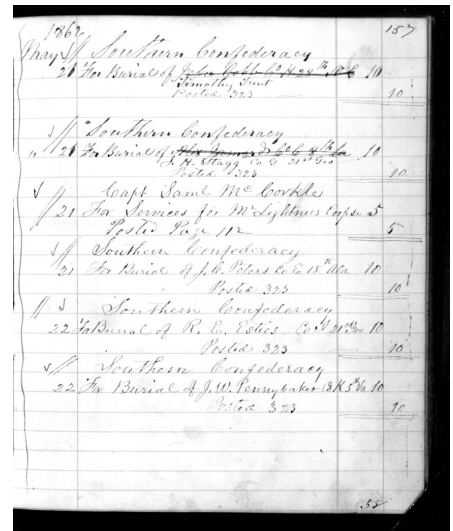 1862 157
May // Southern Confederacy
21 For Burial of John Cobb Co H 28th N C 10
Timothy Trent
Posted 323 10
// Southern Confederacy
" 21 For Burial of Alex Co C La 10
J. H. Stagg Co G 21st Geo
Posted 323 10
// Capt Saml McCorkle
21 For Services for Mr Lightner Corpse 5
Posted Page 112 5
// Southern Confederacy
21 For Burial of J. C. Peters Co E 15th Ala 10
Posted 323 10
// Southern Confederacy
22 For Burial of R. E. Co 21st Geo 10
Posted 323 10
// Southern Confederacy
22 For Burial of J. W. Pennybaker K 5th Va 10
Posted 323 10